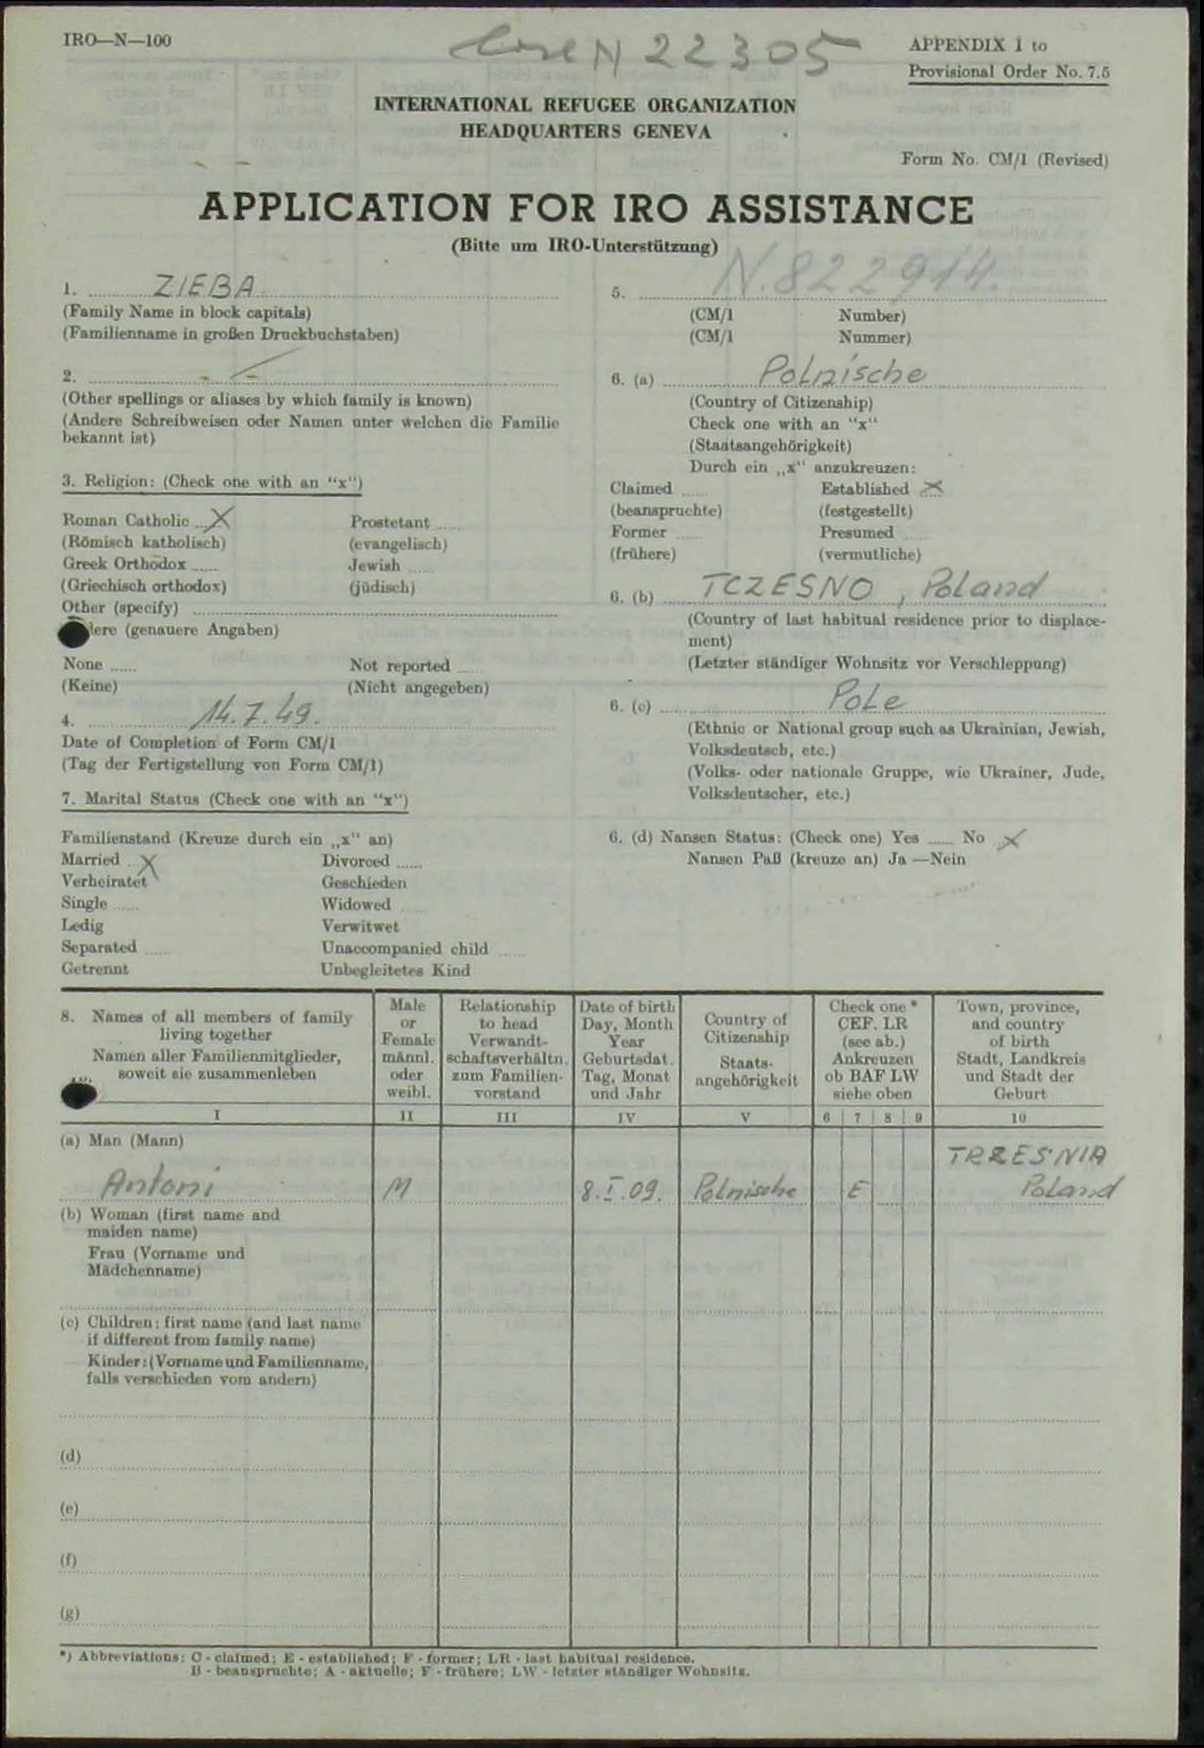 IRO—N—100
Case N 22305
APPENDIX 1 to
Provisional Order No. 7.5
INTERNATIONAL REFUGEE ORGANIZATION
HEADQUARTERS GENEVA
Form No. CM/1 (Revised)
APPLICATION FOR IRO ASSISTANCE
(Bitte um IRO-Unterstützung)
1. ZIEBA
(Family Name in block capitals)
(Familienname in großen Druckbuchstaben)
2. –
(Other spellings or aliases by which family is known)
(Andere Schreibweisen oder Namen unter welchen die Familie
bekannt ist)
3. Religion: (Check one with an “x“)
Roman Catholic X Prostetant
(Römisch katholisch) (evangelisch)
Greek Orthodox Jewish
(Griechisch orthodox) (jüdisch)
Other (specify)
(genauere Angaben)
None Not reported
(Keine) (Nicht angegeben)
4. 14.7.49.
Date of Completion of Form CM/1
(Tag der Fertigstellung von Form CM/1)
7. Marital Status (Check one with an “x“)
Familienstand (Kreuze durch ein „x“ an)
Married X Divorced
Verheiratet Geschieden
Single Widowed
Ledig Verwitwet
Separated Unaccompanied child
Getrennt Unbegleitetes Kind
5. N.822914.
(CM/1 Number)
(CM/1 Nummer)
6. (a) Polnische
(Country of Citizenship)
Check one with an “x“
(Staatsangehörigkeit)
Durch ein „x“ anzukreuzen:
Claimed Established X
(beanspruchte) (festgestellt)
Former Presumed
(frühere) (vermutliche)
6. (b) TCZESNO, Poland
(Country of last habitual residence prior to displace-
ment)
(Letzter ständiger Wohnsitz vor Verschleppung)
6. (c) Pole
(Ethnic or National group such as Ukrainian, Jewish,
Volksdeutsch, etc.)
(Volks- oder nationale Gruppe, wie Ukrainer, Jude,
Volksdeutscher, etc.)
6. (d) Nansen Status: (Check one) Yes No X
Nansen Paß (kreuze an) Ja —Nein
8. Names of all members of family
living together
Namen aller Familienmitglieder,
soweit sie zusammenleben
Male
or
Female
männl.
oder
weibl.
Relationship
to head
Verwandt-
schaftsverhältn.
zum Familien-
vorstand
Date of birth
Day, Month
Year
Geburtsdat.
Tag, Monat
und Jahr
Country of
Citizenship
Staats-
angehörigkeit
Check one *
CEF. LR
(see ab.)
Ankreuzen
ob BAF LW
siehe oben
Town, province,
and country
of birth
Stadt, Landkreis
und Stadt der
Geburt
I II III IV V 6 7 8 9 10
(a) Man (Mann) TRZEŚNIA
Antoni M 8.I.09. Polnische E Poland
(b) Woman (first name and
maiden name)
Frau (Vorname und
Mädchenname)
(c) Children: first name (and last name
if different from family name)
Kinder: (Vorname und Familienname,
falls verschieden vom andern)
(d)
(e)
(f)
(g)
*) Abbreviations: C - claimed; E - established; F - former; LR - last habitual residence.
B - beanspruchte; A - aktuelle; F - frühere; LW - letzter ständiger Wohnsitz.